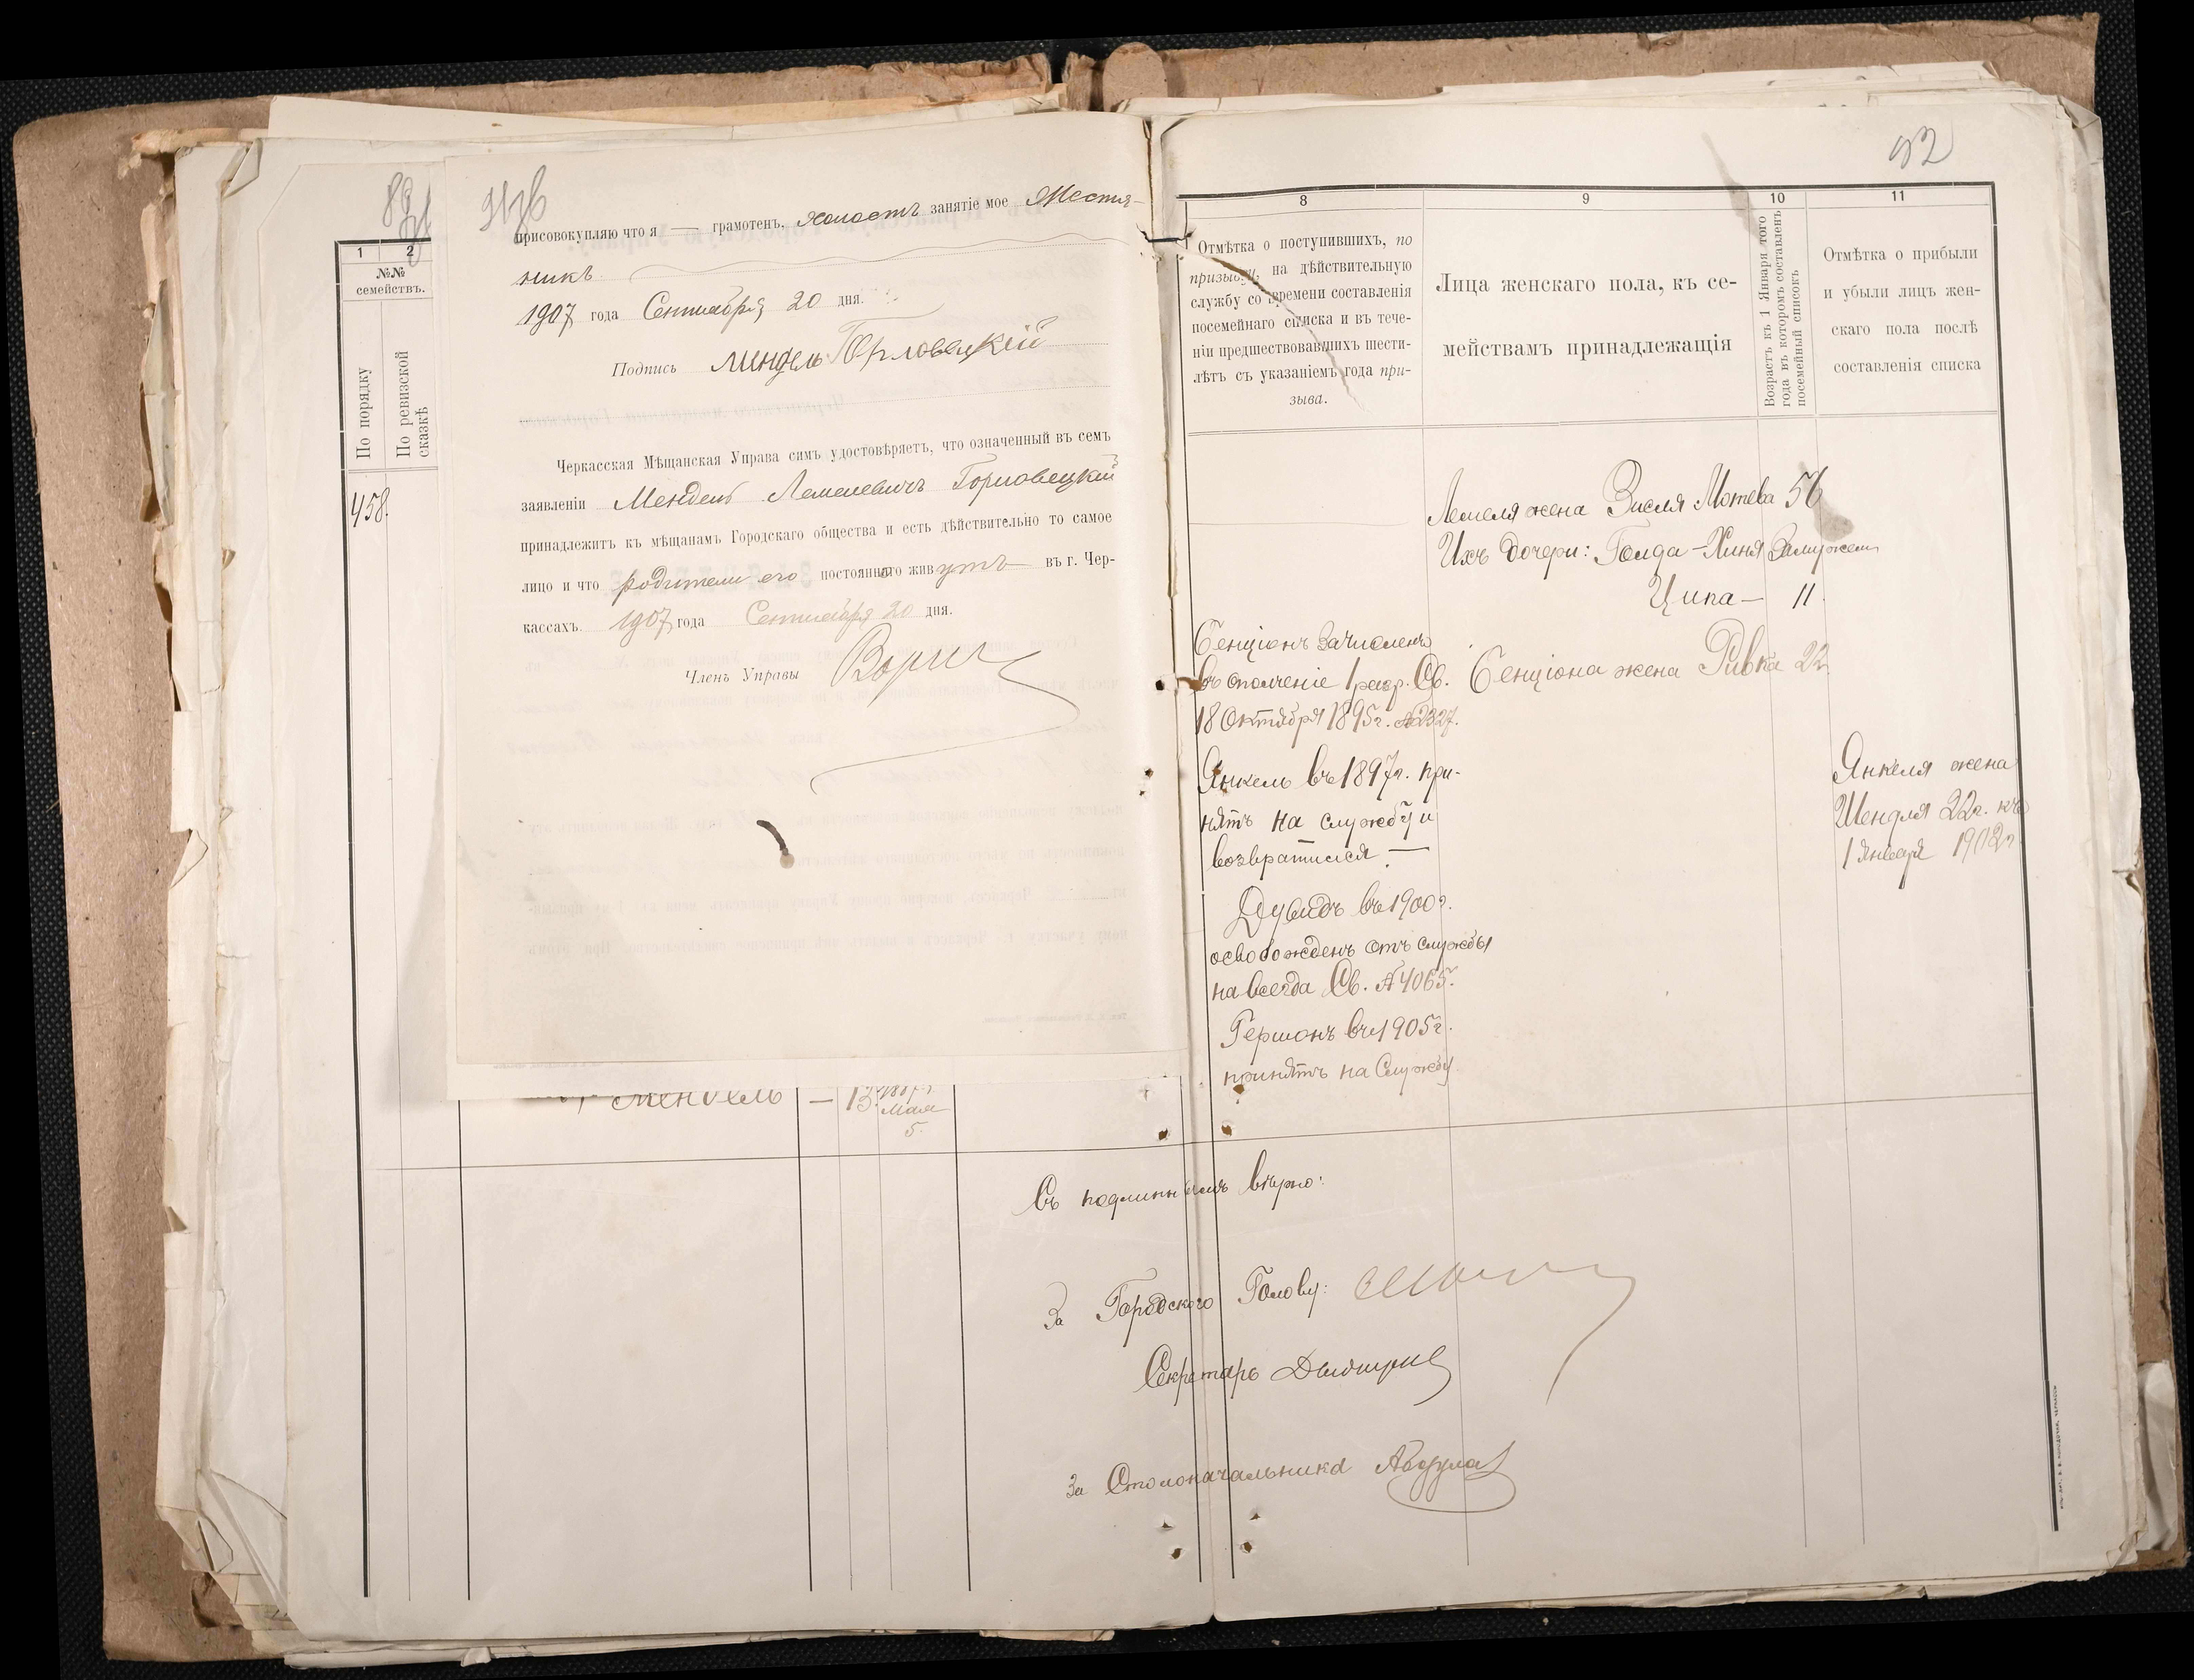 присовокупляю что я — грамотенъ, холостъ занятіе мое Жестя-
никъ
1907 года Сентября 20 дня.
Подпись Мендель Горловецкій
Черкасская Мѣщанская Управа симъ удостовѣряетъ, что означенный въ семъ
заявленіи Мендель Лемелевичъ Горловецкій
принадлежитъ къ мѣщанамъ Городскаго общества и есть дѣйствительно то самое
лицо и что родители его постоянного живутъ въ г. Чер-
кассахъ. 1907 года Сентября 20 дня.
Членъ Управы
1
2
№№
семействъ.
По порядку
По ревизской
сказкѣ
458.
Мендель — 13
Мая
5.
92
8
9
10
11
Отмѣтка о поступившихъ, по
призыву, на дѣйствительную
службу со времени составленія
посемейнаго списка и въ тече-
ніи предшествовавшихъ шести-
лѣтъ съ указаніемъ года при-
зыва.
Лица женскаго пола, къ се-
мействамъ принадлежащія
Возрастъ къ 1 Января того
года въ которомъ составленъ
посемейный списокъ
Отмѣтка о прибыли
и убыли лицъ жен-
скаго пола послѣ
составленія списка
Лемеля жена Зисля Мотева 56
Ихъ дочери: Голда-Хиня Замужем
Ципа — 11.
Бенціонъ зачисленъ
въ ополченіе 1 разр. Св.
18 Октября 1895 г. № 2327.
Бенціона жена Ривка 22.
Янкель въ 1897 г. при-
нятъ на службу и
возвратился. —
Янкеля жена
Шендля 22 г. къ
1 Января 1902 г.
Дувидъ въ 1900 г.
освобожденъ отъ службы
на всегда Св. № 4065.
Гершонъ въ 1905 г.
принятъ на Службу.
Съ подлиннымъ вѣрно:
За Городского Голову:
Секретарь
За Столоначальника